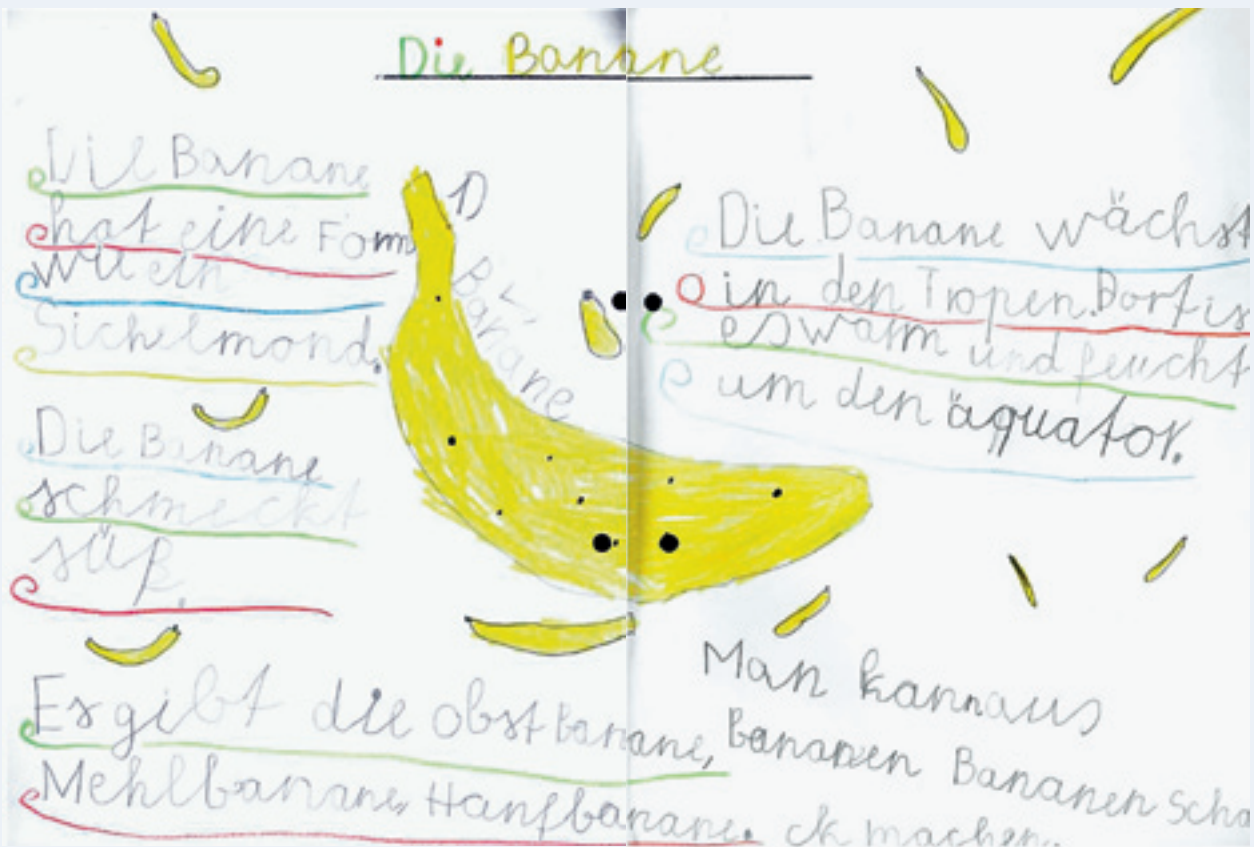 Die Banane
Die Banane
hat eine Form
wie ein
Sichelmond.
D
Banane
Die Banane
schmeckt
süß.
Die Banane wächst
in den Tropen. Dort is
es warm und feucht
um den äquator.
Es gibt die obst Banane,
Mehlbanane, Hanfbanane.
Man kann aus
Bananen Bananen Scha
ck machen.